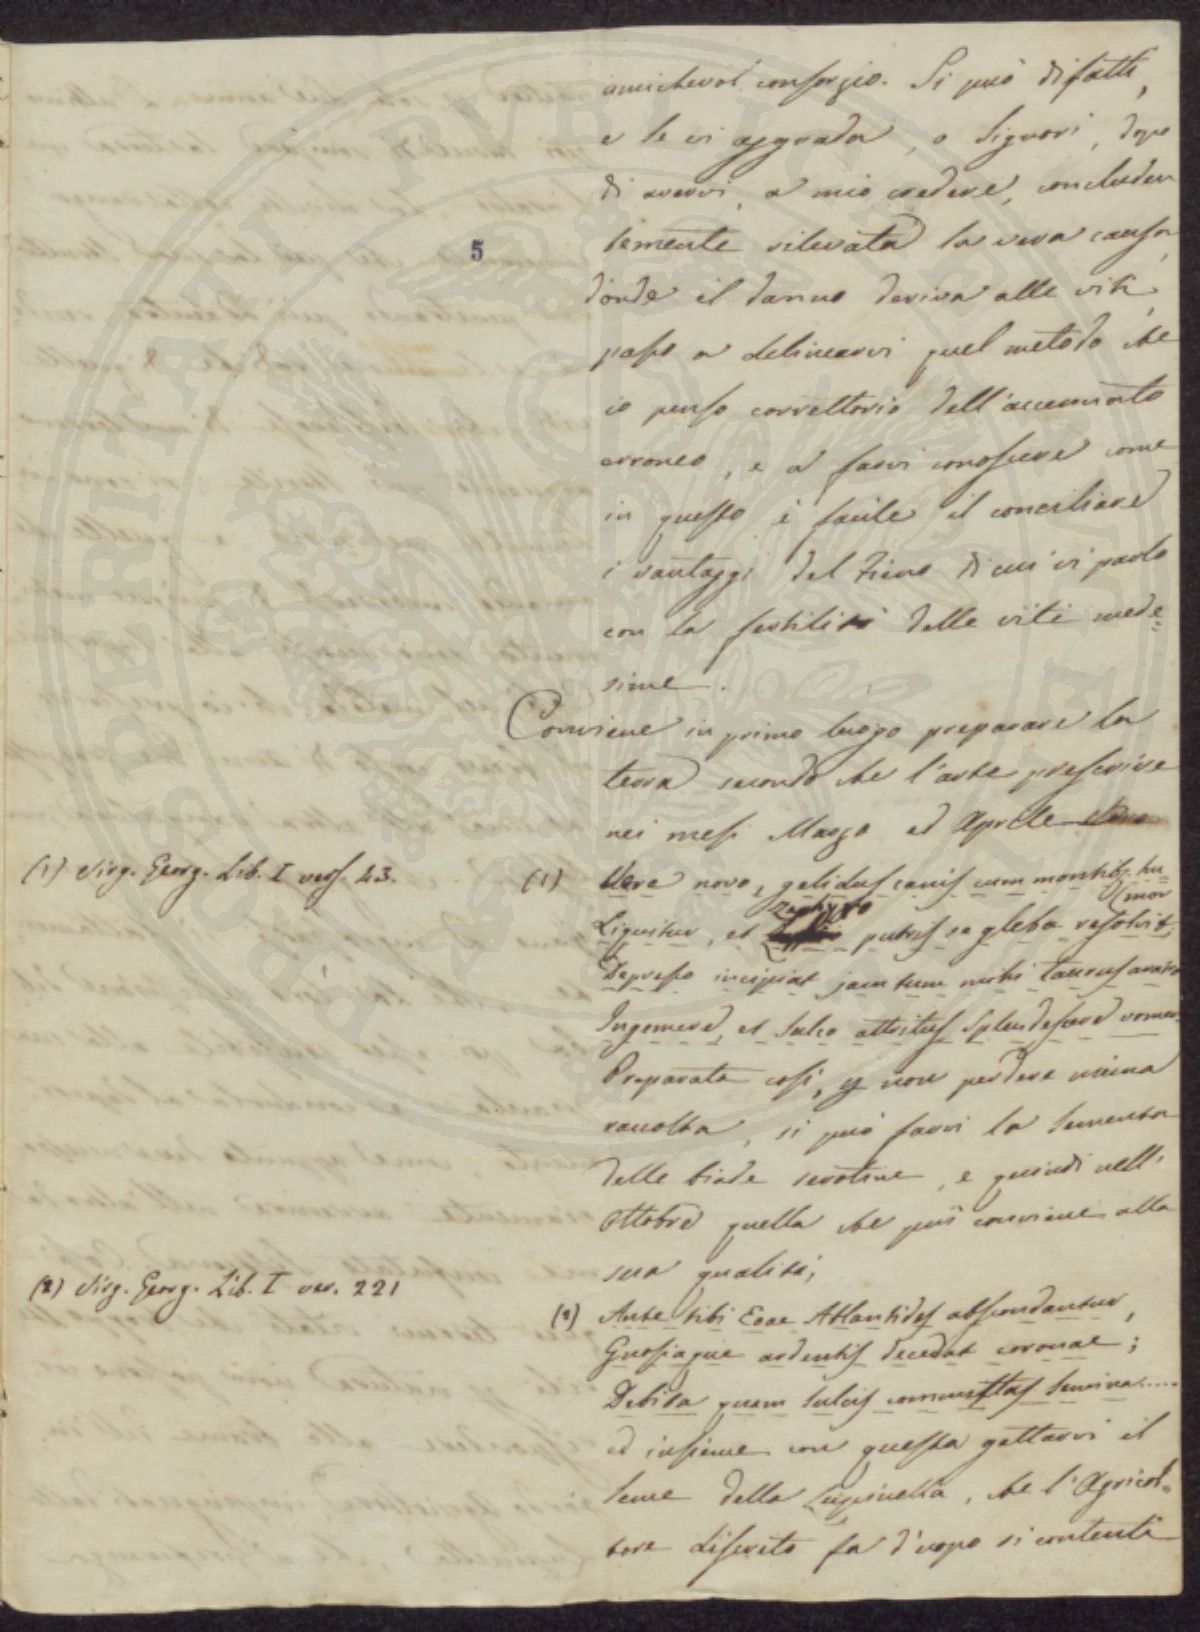 5
amichevol consorzio. Si può di fatti,
e se vi aggrada, o Signori, dopo
di avervi, a mio credere, concluden
temente rilevata la vera causa,
donde il danno deriva alle viti,
passo a delinearvi quel metodo che
io penso correttorio dell'accennato
erroneo, e a farvi conoscere come
in questo è facile il conciliare
i vantaggi del Fieno di cui vi parlo
con la fertilità delle viti mede=
sime.
Conviene in primo luogo preparare la
terra secondo che l'arte prescrive
nei mesi Marzo ed Aprile
(1) Virg. Georg. Lib. I vers. 43.
(1) Vere novo, gelidus canis cum montib. hu=
(mor
Liquitur, et Zephyro putris se gleba resolvit,
Depresso incipiat jam tum mihi Taurus aratro
Ingemere, et sulco attritus splendescere vomer.
Preparata così, e non perdere niuna
raccolta, si può farvi la sementa
delle biade serotine, e quindi nell'
Ottobre quella che più conviene alla
sua qualità;
(2) Virg. Georg. Lib. I ver. 221
(2) Ante tibi Eoae Atlantides abscondantur,
Gnosiaque ardentis decedat coronae;
Debita quam sulcis committas semina.....
ed insieme con questa gettarvi il
seme della Lupinella, che l'Agricol=
tore discreto fa d'uopo si contenti